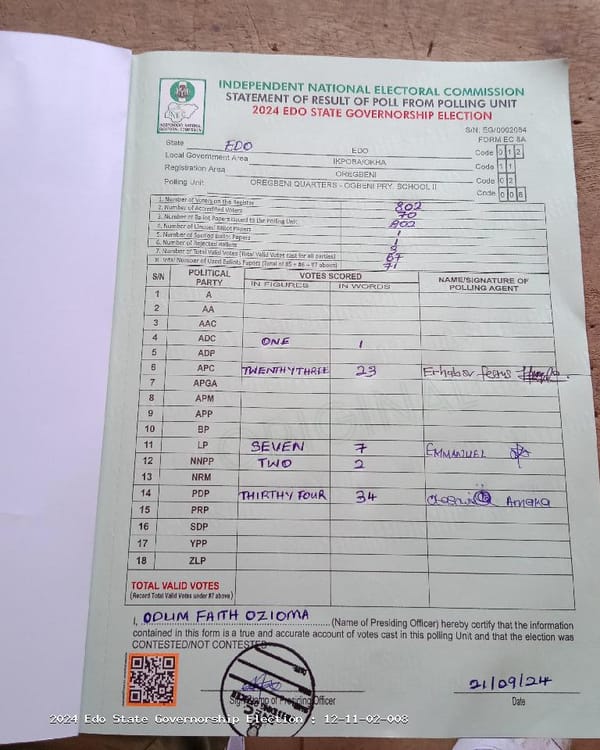 INDEPENDENT NATIONAL ELECTORAL COMMISSION
STATEMENT OF RESULT OF POLL FROM POLLING UNIT
2024 EDO STATE GOVERNORSHIP ELECTION
S/N: EG/0002084
FORM EC 8A
State EDO EDO Code 0 1 2
Local Government Area IKPOBA/OKHA Code 1 1
Registration Area OREGBENI Code 0 2
Polling Unit OREGBENI QUARTERS - OGBENI PRY. SCHOOL II Code 0 0 8
1. Number of Voters on the Register 802
2. Number of Accredited Voters 70
3. Number of Ballot Papers Issued to the Polling Unit 802
4. Number of Unused Ballot Papers
5. Number of Spoiled Ballot Papers 1
6. Number of Rejected Ballots 3
7. Number of Total Valid Votes (Total Valid Votes cast for all parties) 67
8. Total Number of Used Ballots Papers (Total of #5 + #6 + #7 above) 71
S/N POLITICAL PARTY VOTES SCORED NAME/SIGNATURE OF POLLING AGENT
IN FIGURES IN WORDS
1 A
2 AA
3 AAC
4 ADC ONE 1
5 ADP
6 APC TWENTHYTHREE 23 Erhabor festus
7 APGA
8 APM
9 APP
10 BP
11 LP SEVEN 7 EMMANUEL
12 NNPP TWO 2
13 NRM
14 PDP THIRTHY FOUR 34 Amaka
15 PRP
16 SDP
17 YPP
18 ZLP
TOTAL VALID VOTES
(Record Total Valid Votes under #7 above)
I, ODLIM FAITH OZIOMA (Name of Presiding Officer) hereby certify that the information
contained in this form is a true and accurate account of votes cast in this polling Unit and that the election was
CONTESTED/NOT CONTESTED
21/09/24
Officer
Date
2024 Edo State Governorship Election : 12-11-02-008